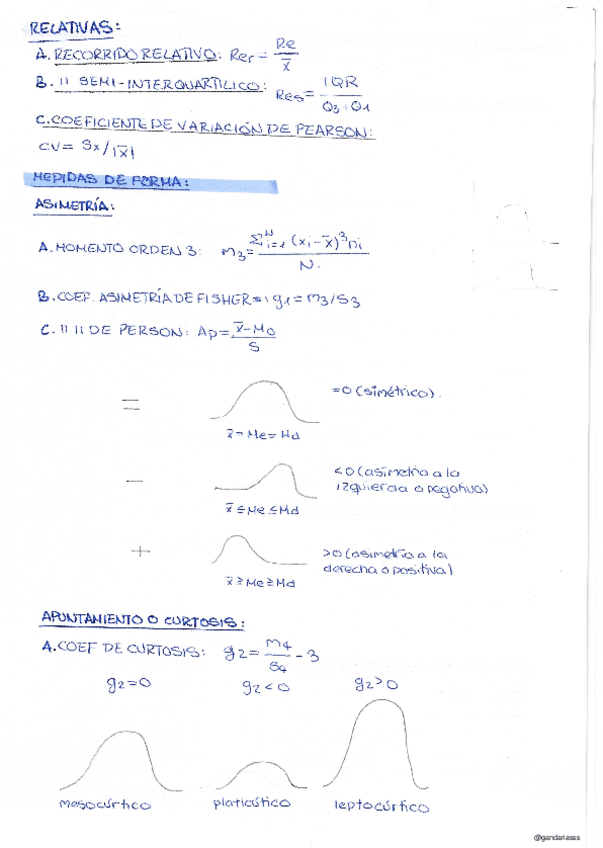 RELATIVAS:
A. RECORRIDO RELATIVO: Rer = Re / x̄
B. 11 SEMI-INTERQUARTÍLICO: Res = IQR / Q3+Q1
C. COEFICIENTE DE VARIACIÓN DE PEARSON:
CV = Sx/|x̄|
MEDIDAS DE FORMA:
ASIMETRÍA:
A. MOMENTO ORDEN 3: m3 = Σᴺi=1 (xi-x̄)³ni / N.
B. COEF. ASIMETRÍA DE FISHER =: g1 = m3/S3
C. 11 11 DE PERSON: Ap = x̄-Mo / S
= =0 (simétrico).
x̄ = Me = Md
- <0 (asimetria a la
izquierda o negativa)
x̄ ≤ Me ≤ Md
+ >0 (asimetria a la
derecha o positiva)
x̄ ≥ Me ≥ Md
APUNTAMIENTO O CURTOSIS:
A. COEF DE CURTOSIS: g2 = m4 / S4 - 3
g2=0 g2<0 g2>0
mesocúrtico platicútico leptocúrtico
@gandariasss